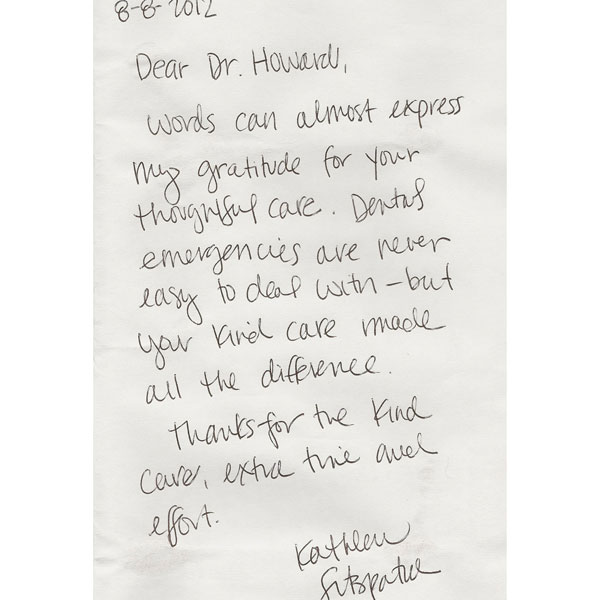 8-8-2012
Dear Dr. Howard,
Words can almost express
my gratitude for your
thoughtful care. Dental
emergencies are never
easy to deal with - but
your kind care made
all the difference.
Thanks for the kind
care, extra time and
effort.
Kathleen
Fitzpatrick